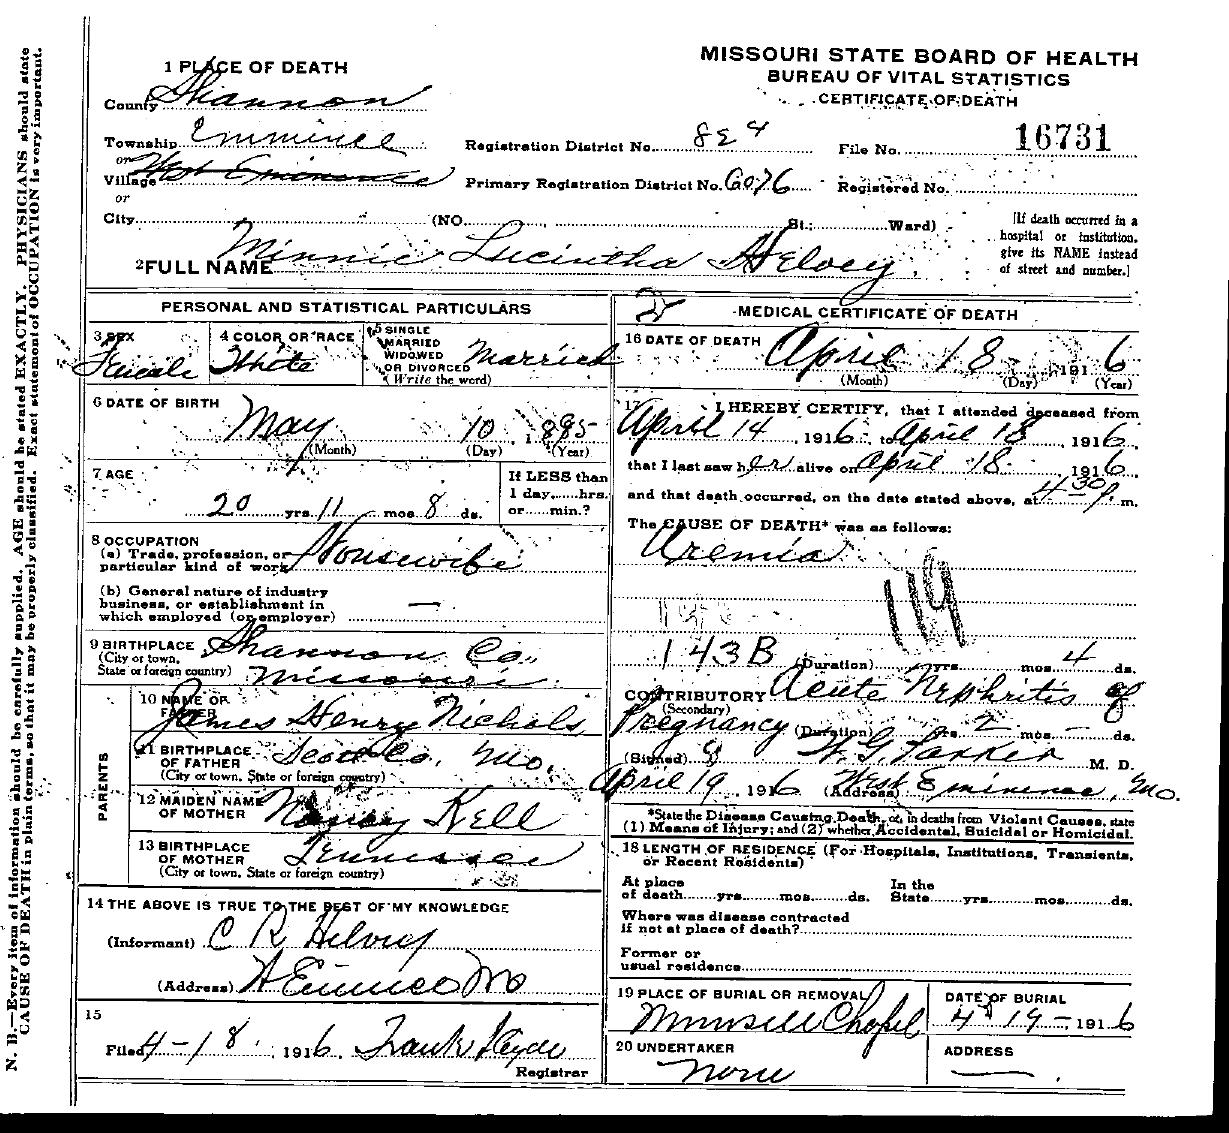 MISSOURI STATE BOARD OF HEALTH
BUREAU OF VITAL STATISTICS
CERTIFICATE OF DEATH
1 PLACE OF DEATH
County Shannon
Township Emmince
or
Village West Eminence
or
City (NO. St.; Ward)
Registration District No. 824
File No. 16731
Primary Registration District No. 6076
Registered No.
[If death occurred in a
hospital or institution,
give its NAME instead
of street and number.]
2 FULL NAME Minnie Lucintha Helvey
PERSONAL AND STATISTICAL PARTICULARS
3 SEX
Female
4 COLOR OR RACE
White
5 SINGLE
MARRIED
WIDOWED
OR DIVORCED
(Write the word)
Married
6 DATE OF BIRTH
May 10, 1885
(Month) (Day) (Year)
7 AGE
20 yrs. 11 mos. 8 ds.
If LESS than
1 day, hrs.
or min.?
8 OCCUPATION
(a) Trade, profession, or
particular kind of work Housewife
(b) General nature of industry
business, or establishment in
which employed (or employer) —
9 BIRTHPLACE
(City or town,
State or foreign country)
Shannon Co.,
Missouri
PARENTS
10 NAME OF
FATHER
James Henry Nichols
11 BIRTHPLACE
OF FATHER
(City or town, State or foreign country)
Scott Co. Mo.
12 MAIDEN NAME
OF MOTHER
Nancy Kell
13 BIRTHPLACE
OF MOTHER
(City or town, State or foreign country)
Tennessee
14 THE ABOVE IS TRUE TO THE BEST OF MY KNOWLEDGE
(Informant) C R Helvey
(Address) W Eminec Mo
15
Filed 4-18, 1916. Frank Hyde
Registrar
MEDICAL CERTIFICATE OF DEATH
16 DATE OF DEATH April 18 1916
(Month) (Day) (Year)
17 I HEREBY CERTIFY, that I attended deceased from
April 14, 1916 to April 18, 1916
that I last saw her alive on April 18 1916
and that death occurred, on the date stated above, at 4-30 P. m.
The CAUSE OF DEATH* was as follows:
Uremia
119
143B
(Duration) yrs. mos. 4 ds.
CONTRIBUTORY Acute Nephritis of
(Secondary)
Pregnancy (Duration) yrs. 2 mos. — ds.
(Signed) W. G. Parker M. D.
April 19, 1916 (Address) West Eminence, Mo.
*State the Disease Causing Death, or, in deaths from Violent Causes, state
(1) Means of Injury; and (2) whether Accidental, Suicidal or Homicidal.
18 LENGTH OF RESIDENCE (For Hospitals, Institutions, Transients,
or Recent Residents)
At place
of death yrs. mos. ds.
In the
State yrs. mos. ds.
Where was disease contracted
if not at place of death?
Former or
usual residence
19 PLACE OF BURIAL OR REMOVAL
Munsell Chapel
DATE OF BURIAL
4-19-1916
20 UNDERTAKER
None
ADDRESS
—
N. B.—Every item of information should be carefully supplied. AGE should be stated EXACTLY. PHYSICIANS should state
CAUSE OF DEATH in plain terms, so that it may be properly classified. Exact statement of OCCUPATION is very important.